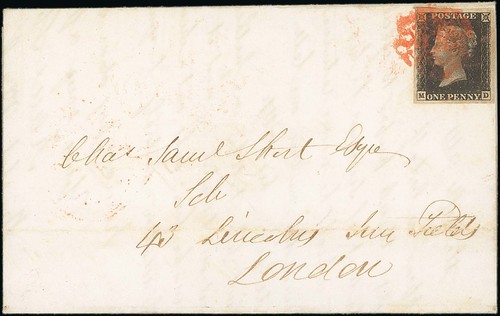 POSTAGE
ONE PENNY
M D
Chas Saml Short Esqre
Solr
43 Lincolns Inn Fields
London